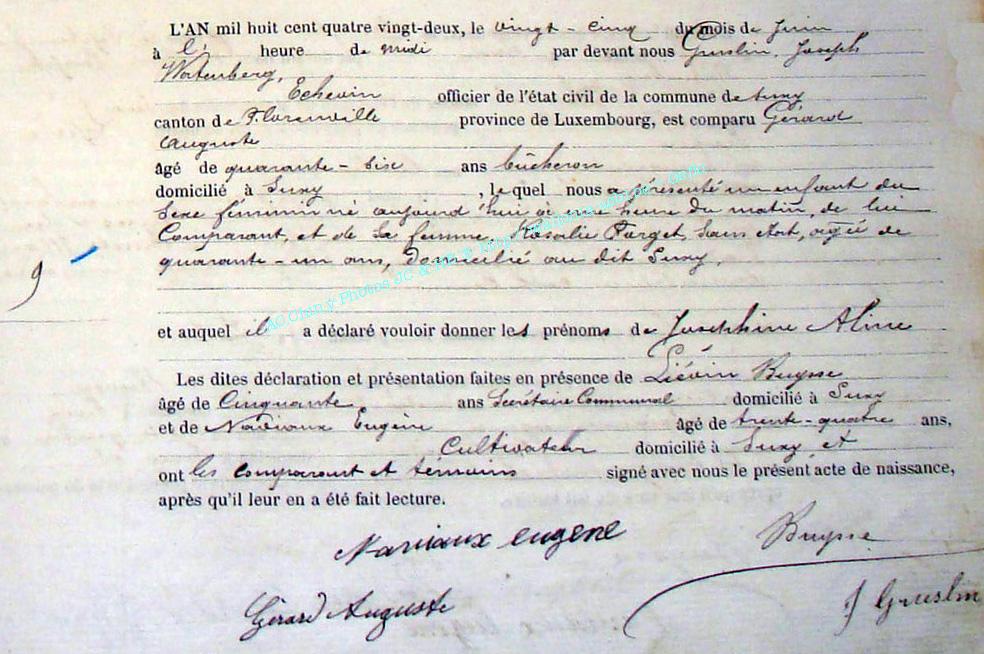 L'AN mil huit cent quatre vingt-deux, le vingt-cinq du mois de Juin
à l' heure de midi par devant nous Guslin, Joseph
Échevin officier de l'état civil de la commune de Suxy
canton de Florenville province de Luxembourg, est comparu Gérard
Auguste
âgé de quarante-six ans bûcheron
domicilié à Suxy, lequel nous a présenté un enfant du
sexe féminin né aujourd'hui à une heure du matin, de lui
Comparant, et de sa femme, Rosalie Forget, sans état, agée de
quarante-un ans, domicilié au dit Suxy.
9
et auquel il a déclaré vouloir donner les prénoms de Joséphine Aline
Les dites déclaration et présentation faites en présence de Liévin Buysse
âgé de Cinquante ans Secrétaire Communal domicilié à Suxy
et de Mariaux Eugène âgé de trente-quatre ans,
Cultivateur domicilié à Suxy et
ont les comparant et temoins signé avec nous le présent acte de naissance,
après qu'il leur en a été fait lecture.
Mariaux eugene Buysse
Gérard Auguste J Guslin
AC Chiny Photos JC &